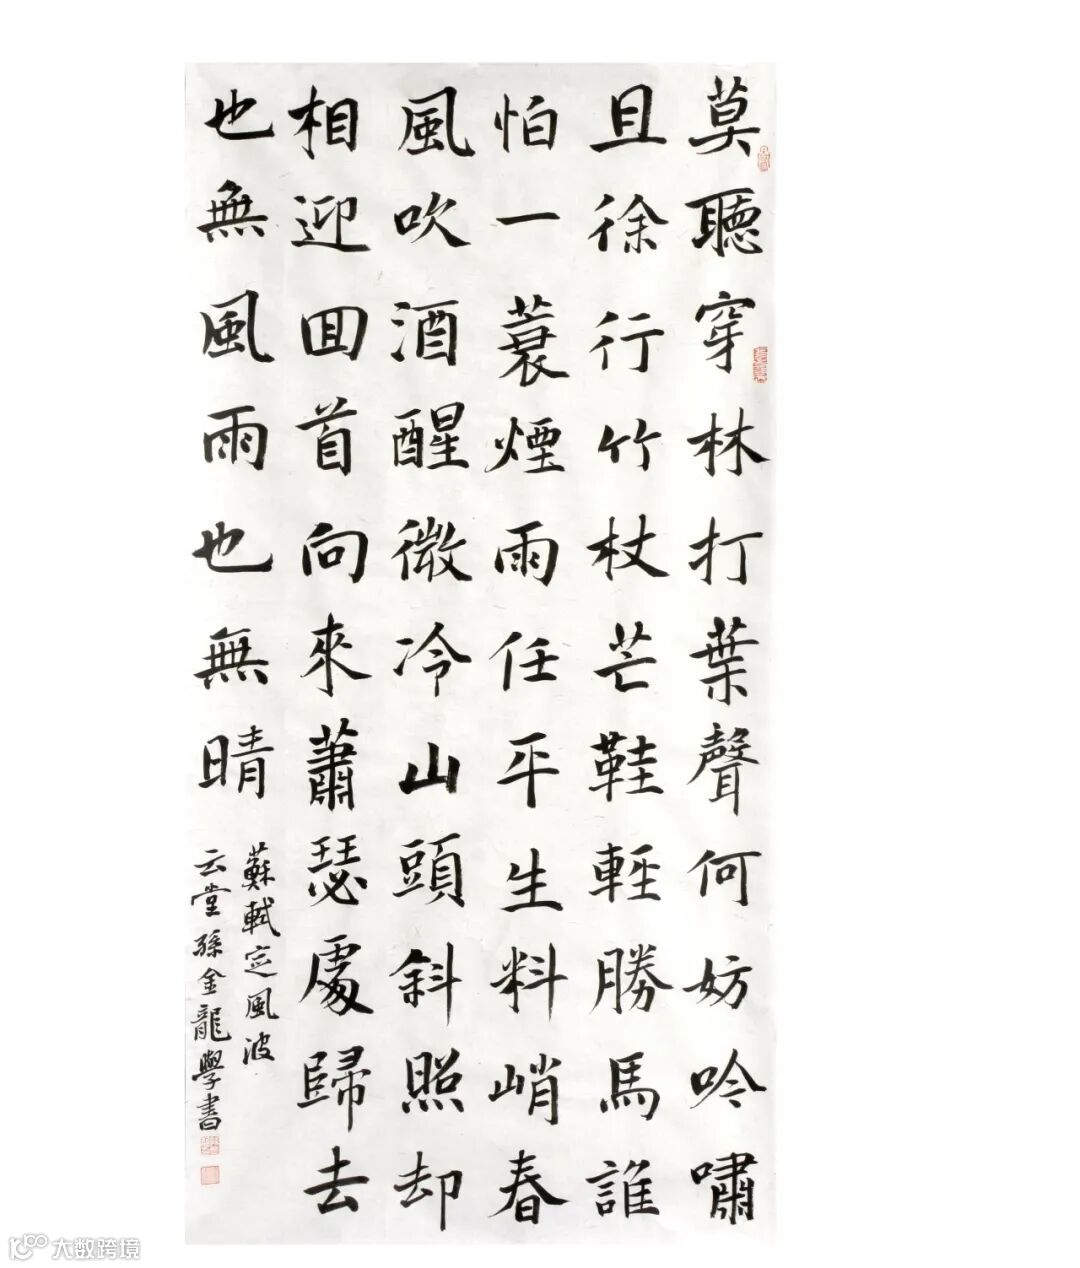 莫聽穿林打葉聲何妨吟嘯
且徐行竹杖芒鞋輕勝馬誰
怕一蓑煙雨任平生料峭春
風吹酒醒微冷山頭斜照却
相迎回首向來蕭瑟處歸去
也無風雨也無晴
蘇軾定風波
云堂孫金龍學書
大数跨境